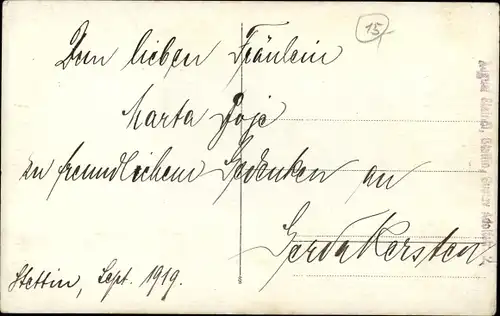 15,-
Dem lieben Fräulein
Marta
zu freundlichem Gedenken an
Gerda Kersten
Stettin, Sept. 1919.